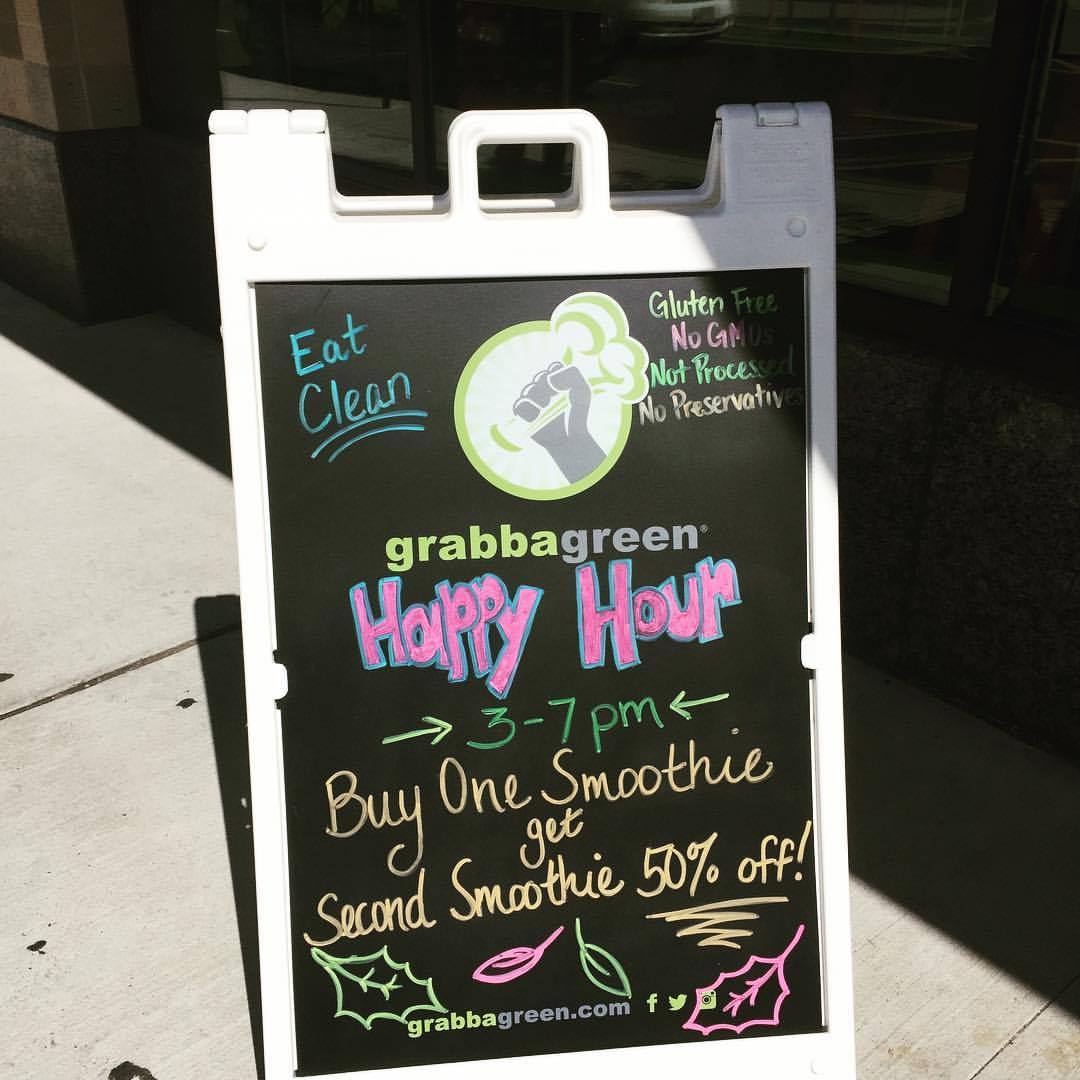 Eat
Clean
Gluten Free
No GMOs
Not Processed
No Preservatives
grabbagreen®
Happy Hour
3-7pm
Buy One Smoothie
get
Second Smoothie 50% off!
grabbagreen.com